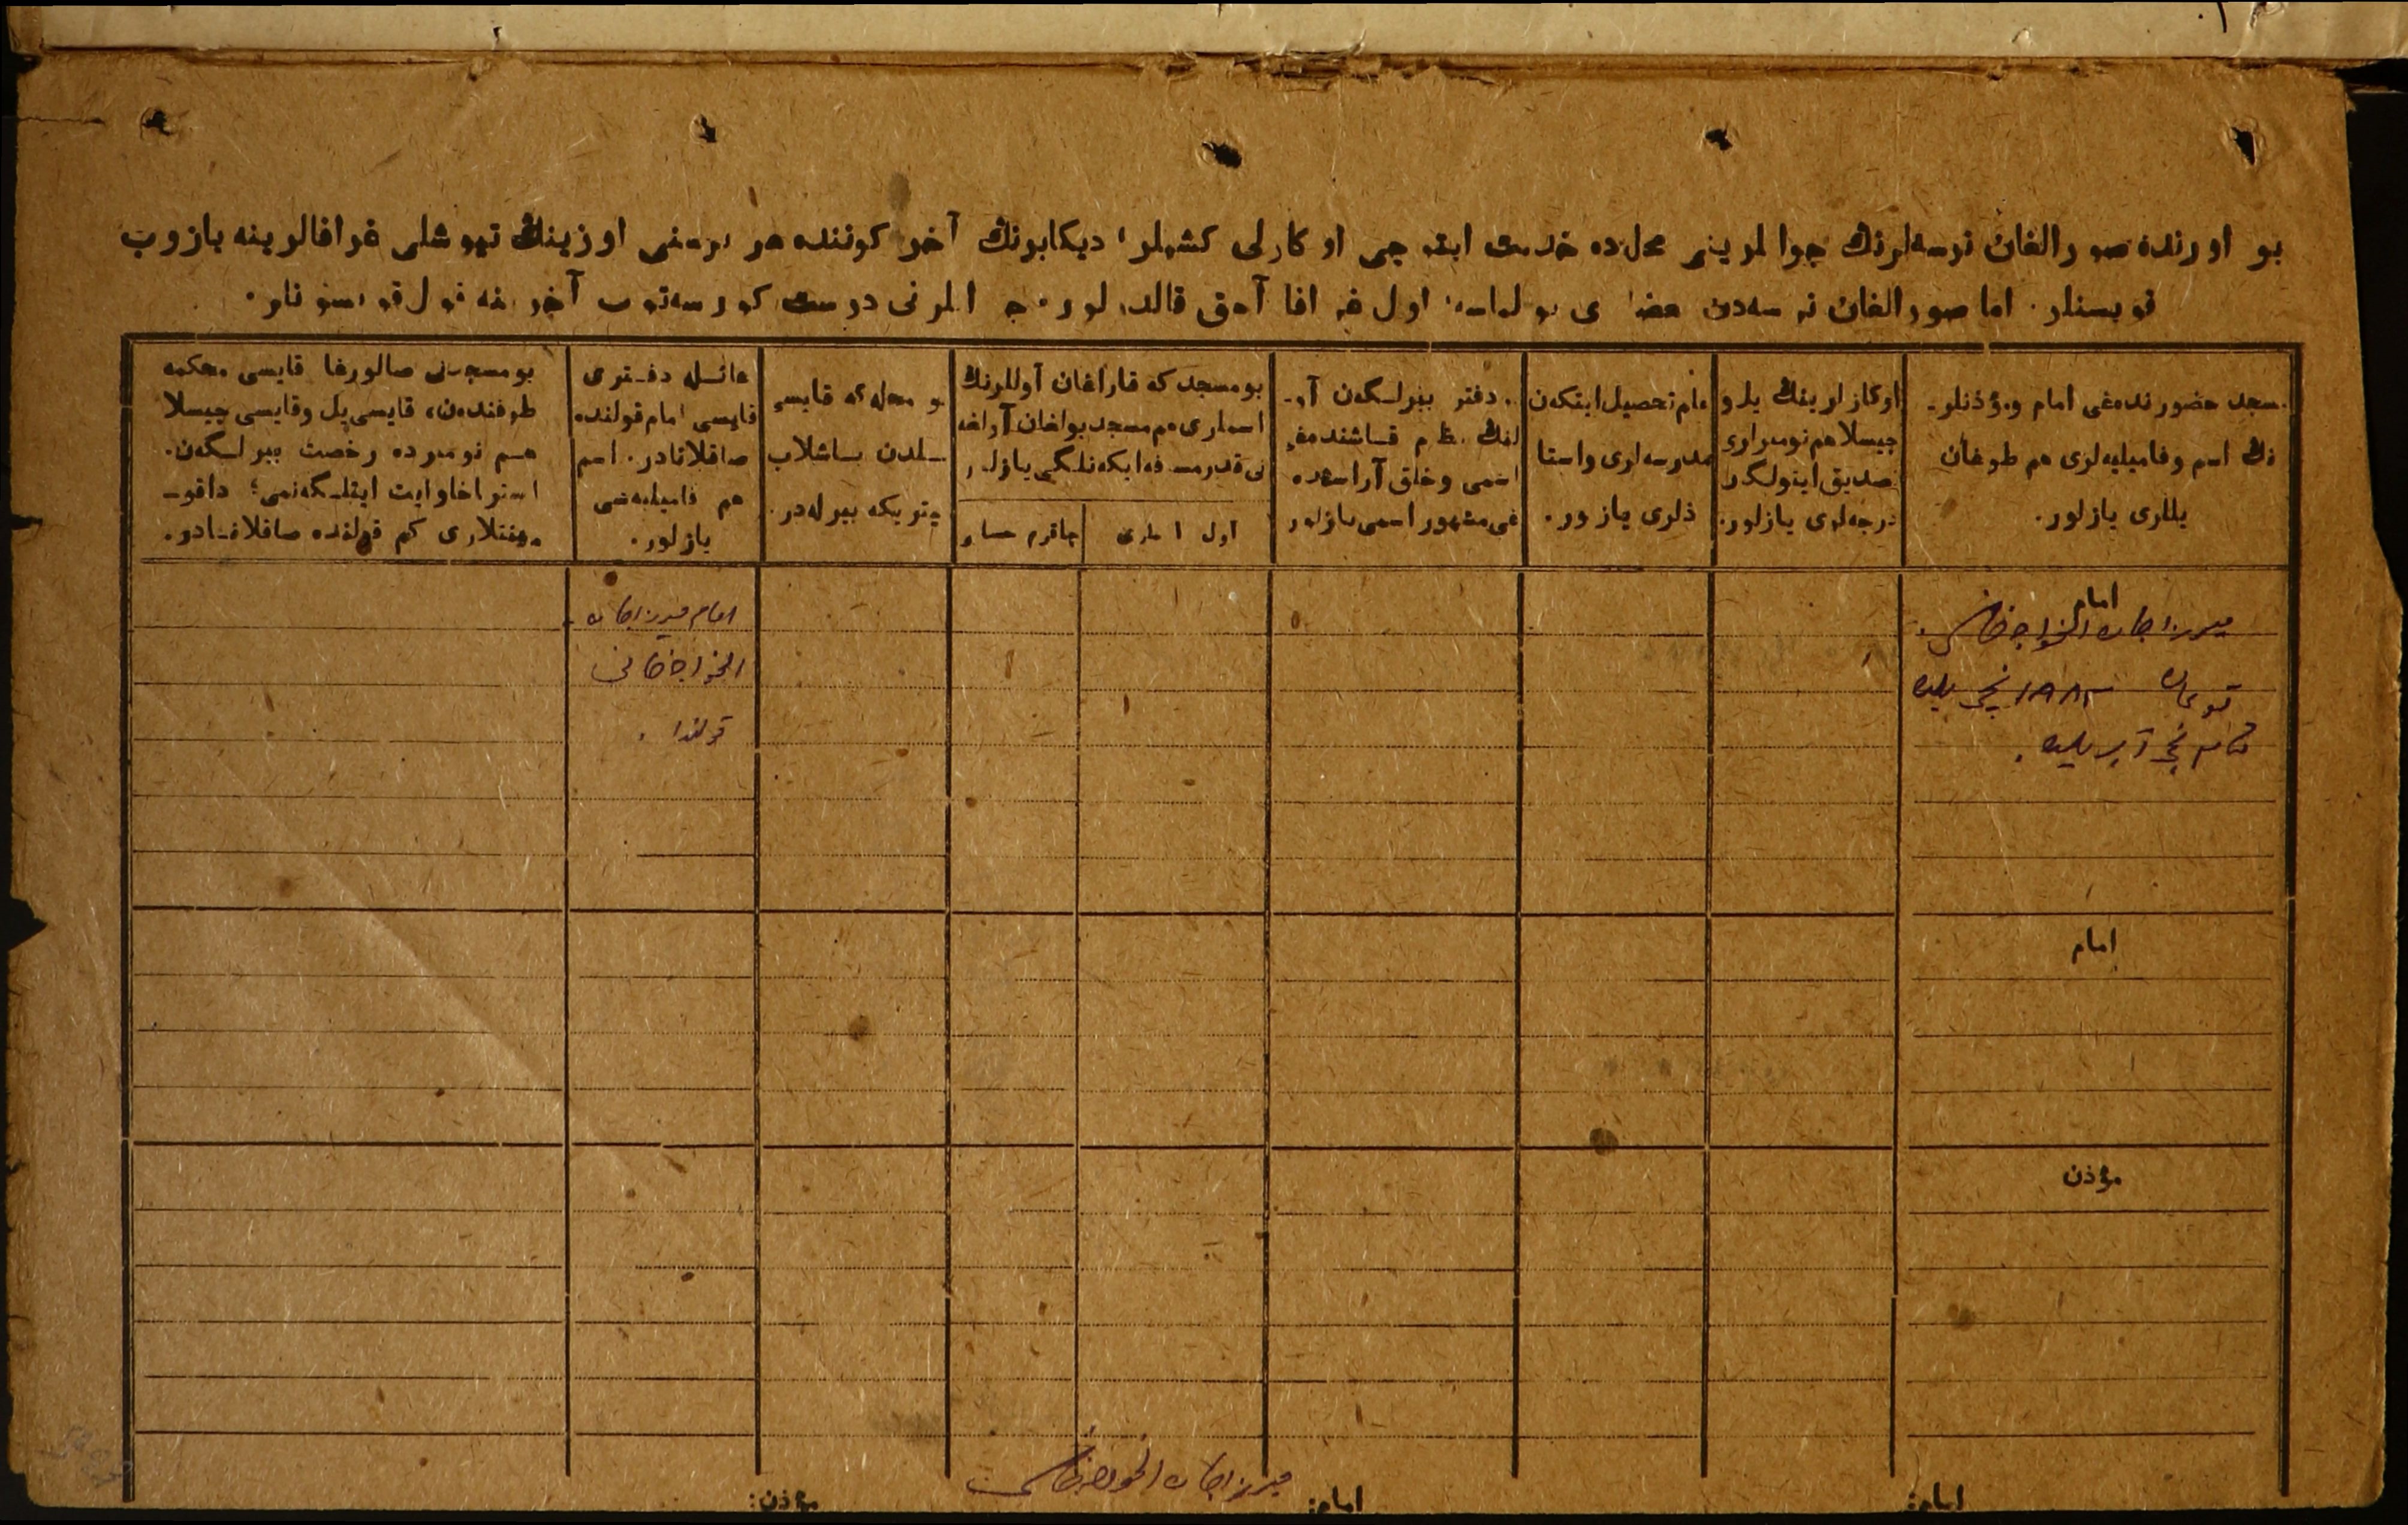 بو اورنده صورالغان نرسەلرنڭ جوابلرینی محل‌ده خدمت ایتەچی اوکازلی کشیلر دیکابرنڭ آخر کوننده هر برسنی اوزینڭ تیوشلی غرافالرینه یازوب
قویسنلر. اما صورالغان نرسەدن بولماسه اول غرافا آچق قالدرلور. جوابلرنی درست کورسەتوب آخرینه قول قویسونلر.
مسجد حضورنده‌غی امام و مؤذنلر-
نڭ اسم وفامیلیه‌لری هم طوغان
یللری یازلور.
اوکازلرینڭ یلی و
چیسلا هم نومیرلری
تصدیق ایتولگن
درجه‌لری یازلور.
امام تحصیل ایتکەن
مدرسه‌لری واستا
ذلری یازلور.
دفتر بیرلگەن آو-
لنڭ قاشنده‌غی
اسمی وخلق آراسنده
غی مشهور اسمی یازلور
بو مسجدکه قاراغان آوللرنڭ
اسملری هم مسجد بولغان آولغه
نی قدر مسافه ایکەنلگی یازلور
اول اسملری
چاقرم حسابی
بو محله‌گه قایسی
یلدن باشلاب
میتریکه بیرله‌در.
عائله دفتری
قایسی امام قولنده
صاقلانادر. اسم
هم فامیلیه‌سی
یازلور.
بو مسجدنی صالورغا قایسی محکمه
طرفندەن، قایسی یل وقایسی چیسلا
هم نومیرده رخصت بیرلگەن.
استراخاوایت ایتلگەنمی؟ داقو-
مینتلاری کم قولنده صاقلانادر.
امام
میرزاجان الخواجەخانی
توغان ١٨٨٢ نچی یلده
نچی آپریلده.
امام میرزاجان
الخواجەخانی
قولندا.
امام
مؤذن
امام:
امام:
میرزاجان الخواجەخانی
مؤذن: